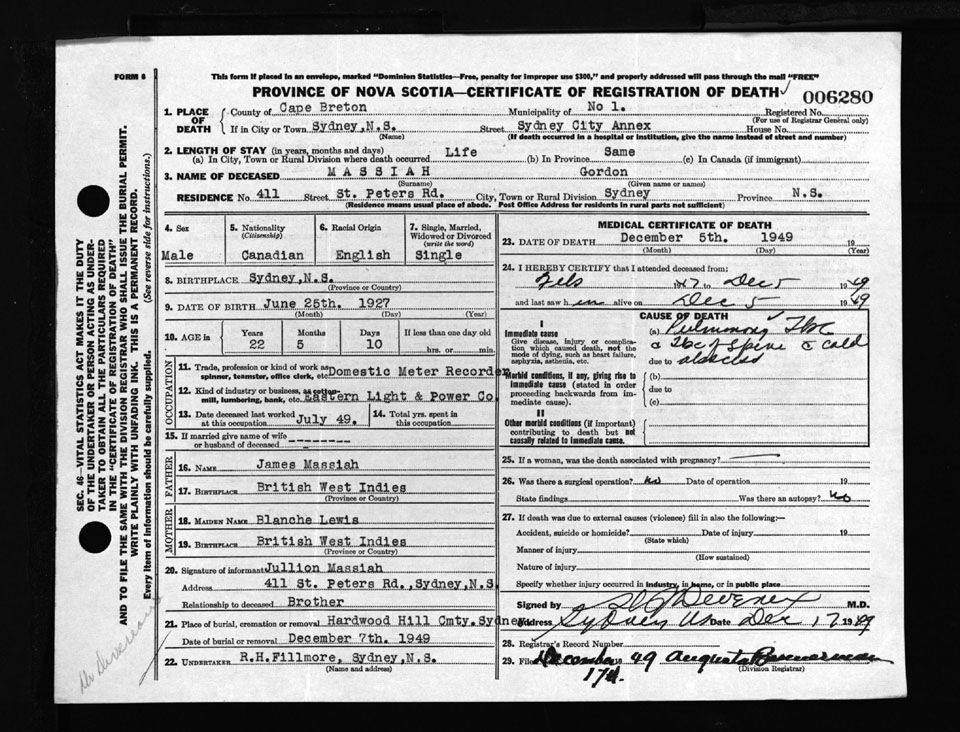 FORM 6
This form if placed in an envelope, marked "Dominion Statistics—Free, penalty for improper use $300," and properly addressed will pass through the mail "FREE"
PROVINCE OF NOVA SCOTIA—CERTIFICATE OF REGISTRATION OF DEATH
006280
1. PLACE OF DEATH
County of Cape Breton Municipality of No 1. Registered No.
(For use of Registrar General only)
If in City or Town Sydney, N.S. Street Sydney City Annex House No.
(Name) (If death occurred in a hospital or institution, give the name instead of street and number)
2. LENGTH OF STAY (in years, months and days)
(a) In City, Town or Rural Division where death occurred Life (b) In Province Same (c) In Canada (if immigrant)
3. NAME OF DECEASED MASSIAH Gordon
(Surname) (Given name or names)
RESIDENCE No. 411 Street St. Peters Rd. City, Town or Rural Division Sydney Province N.S.
(Residence means usual place of abode. Post Office Address for residents in rural parts not sufficient)
4. Sex
Male
5. Nationality (Citizenship)
Canadian
6. Racial Origin
English
7. Single, Married, Widowed or Divorced (write the word)
Single
8. BIRTHPLACE Sydney, N.S.
(Province or Country)
9. DATE OF BIRTH June 25th. 1927
(Month) (Day) (Year)
10. AGE in Years Months Days If less than one day old
22 5 10 hrs. or min.
OCCUPATION
11. Trade, profession or kind of work as spinner, teamster, office clerk, etc. Domestic Meter Recorder
12. Kind of industry or business, as cotton-mill, lumbering, bank, etc. Eastern Light & Power Co.
13. Date deceased last worked at this occupation July 49.
14. Total yrs. spent in this occupation
15. If married give name of wife or husband of deceased
FATHER
16. NAME James Massiah
17. BIRTHPLACE British West Indies
(Province or Country)
MOTHER
18. MAIDEN NAME Blanche Lewis
19. BIRTHPLACE British West Indies
(Province or Country)
20. Signature of informant Jullion Massiah
Address 411 St. Peters Rd., Sydney, N.S.
Relationship to deceased Brother
21. Place of burial, cremation or removal Hardwood Hill Cmty. Sydney
Date of burial or removal December 7th. 1949
22. UNDERTAKER R.H.Fillmore, Sydney, N.S.
(Name and address)
MEDICAL CERTIFICATE OF DEATH
23. DATE OF DEATH December 5th. 1949 19
(Month) (Day) (Year)
24. I HEREBY CERTIFY that I attended deceased from:
to Dec 5 1949
and last saw him alive on Dec 5 1949
CAUSE OF DEATH
I
Immediate cause
Give disease, injury or complication which caused death, not the mode of dying, such as heart failure, asphyxia, asthenia, etc.
(a) Pulmonary Tbc
Tbc of Spine cold
due to abscess
Morbid conditions, if any, giving rise to immediate cause (stated in order proceeding backwards from immediate cause).
(b)
due to
(c)
II
Other morbid conditions (if important) contributing to death but not causally related to immediate cause.
25. If a woman, was the death associated with pregnancy?
26. Was there a surgical operation? no Date of operation 19
State findings Was there an autopsy? no
27. If death was due to external causes (violence) fill in also the following:—
Accident, suicide or homicide? Date of injury 19
(State which)
Manner of injury
(How sustained)
Nature of injury
Specify whether injury occurred in industry, in home, or in public place
Signed by M.D.
Address Sydney NS Date Dec 17 1949
28. Registrar's Record Number
29. Filed December 17th. 1949 Augusta Bannerman
(Division Registrar)
SEC. 46—VITAL STATISTICS ACT MAKES IT THE DUTY
OF THE UNDERTAKER OR PERSON ACTING AS UNDER-
TAKER TO OBTAIN ALL THE PARTICULARS REQUIRED
IN THE "CERTIFICATE OF REGISTRATION OF DEATH"
AND TO FILE THE SAME WITH THE DIVISION REGISTRAR WHO SHALL ISSUE THE BURIAL PERMIT.
WRITE PLAINLY WITH UNFADING INK. THIS IS A PERMANENT RECORD.
Every item of information should be carefully supplied. (See reverse side for instructions.)